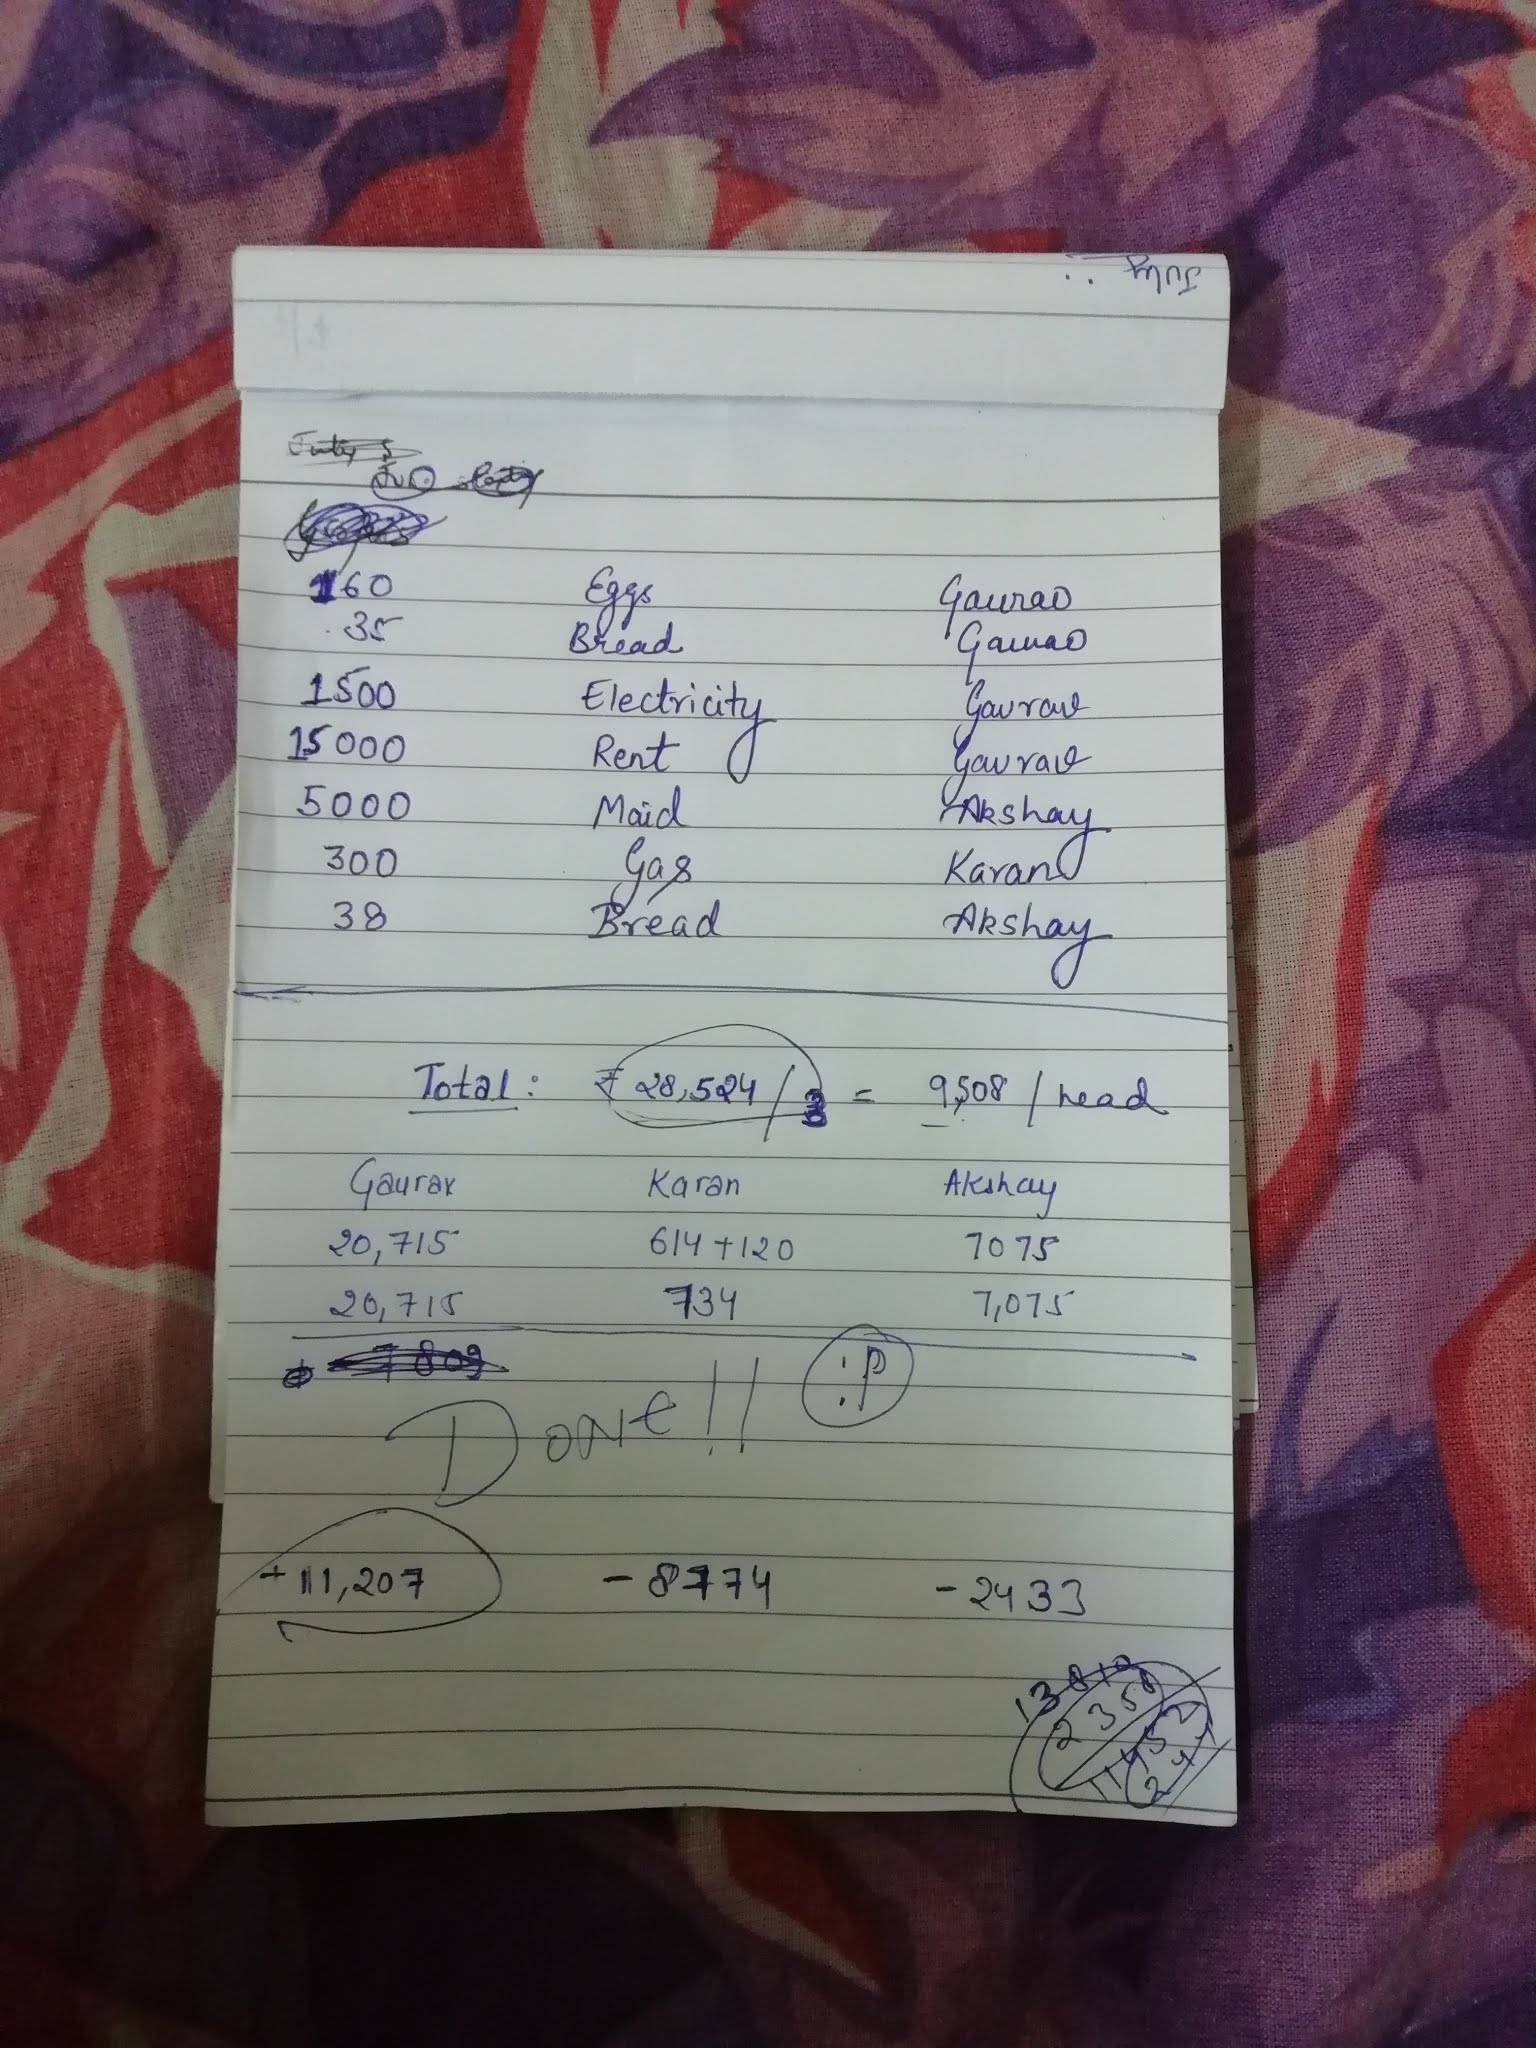 July :
160 Eggs Gaurav
35 Bread Gaurav
1500 Electricity Gaurav
15000 Rent Gaurav
5000 Maid Akshay
300 Gas Karan
38 Bread Akshay
Total : ₹ 28,524 / 3 = 9,508 / head
Gaurav Karan Akshay
20,715 614 + 120 7075
20,715 734 7,075
Done !! :P
+ 11,207 - 8774 - 2433
2358